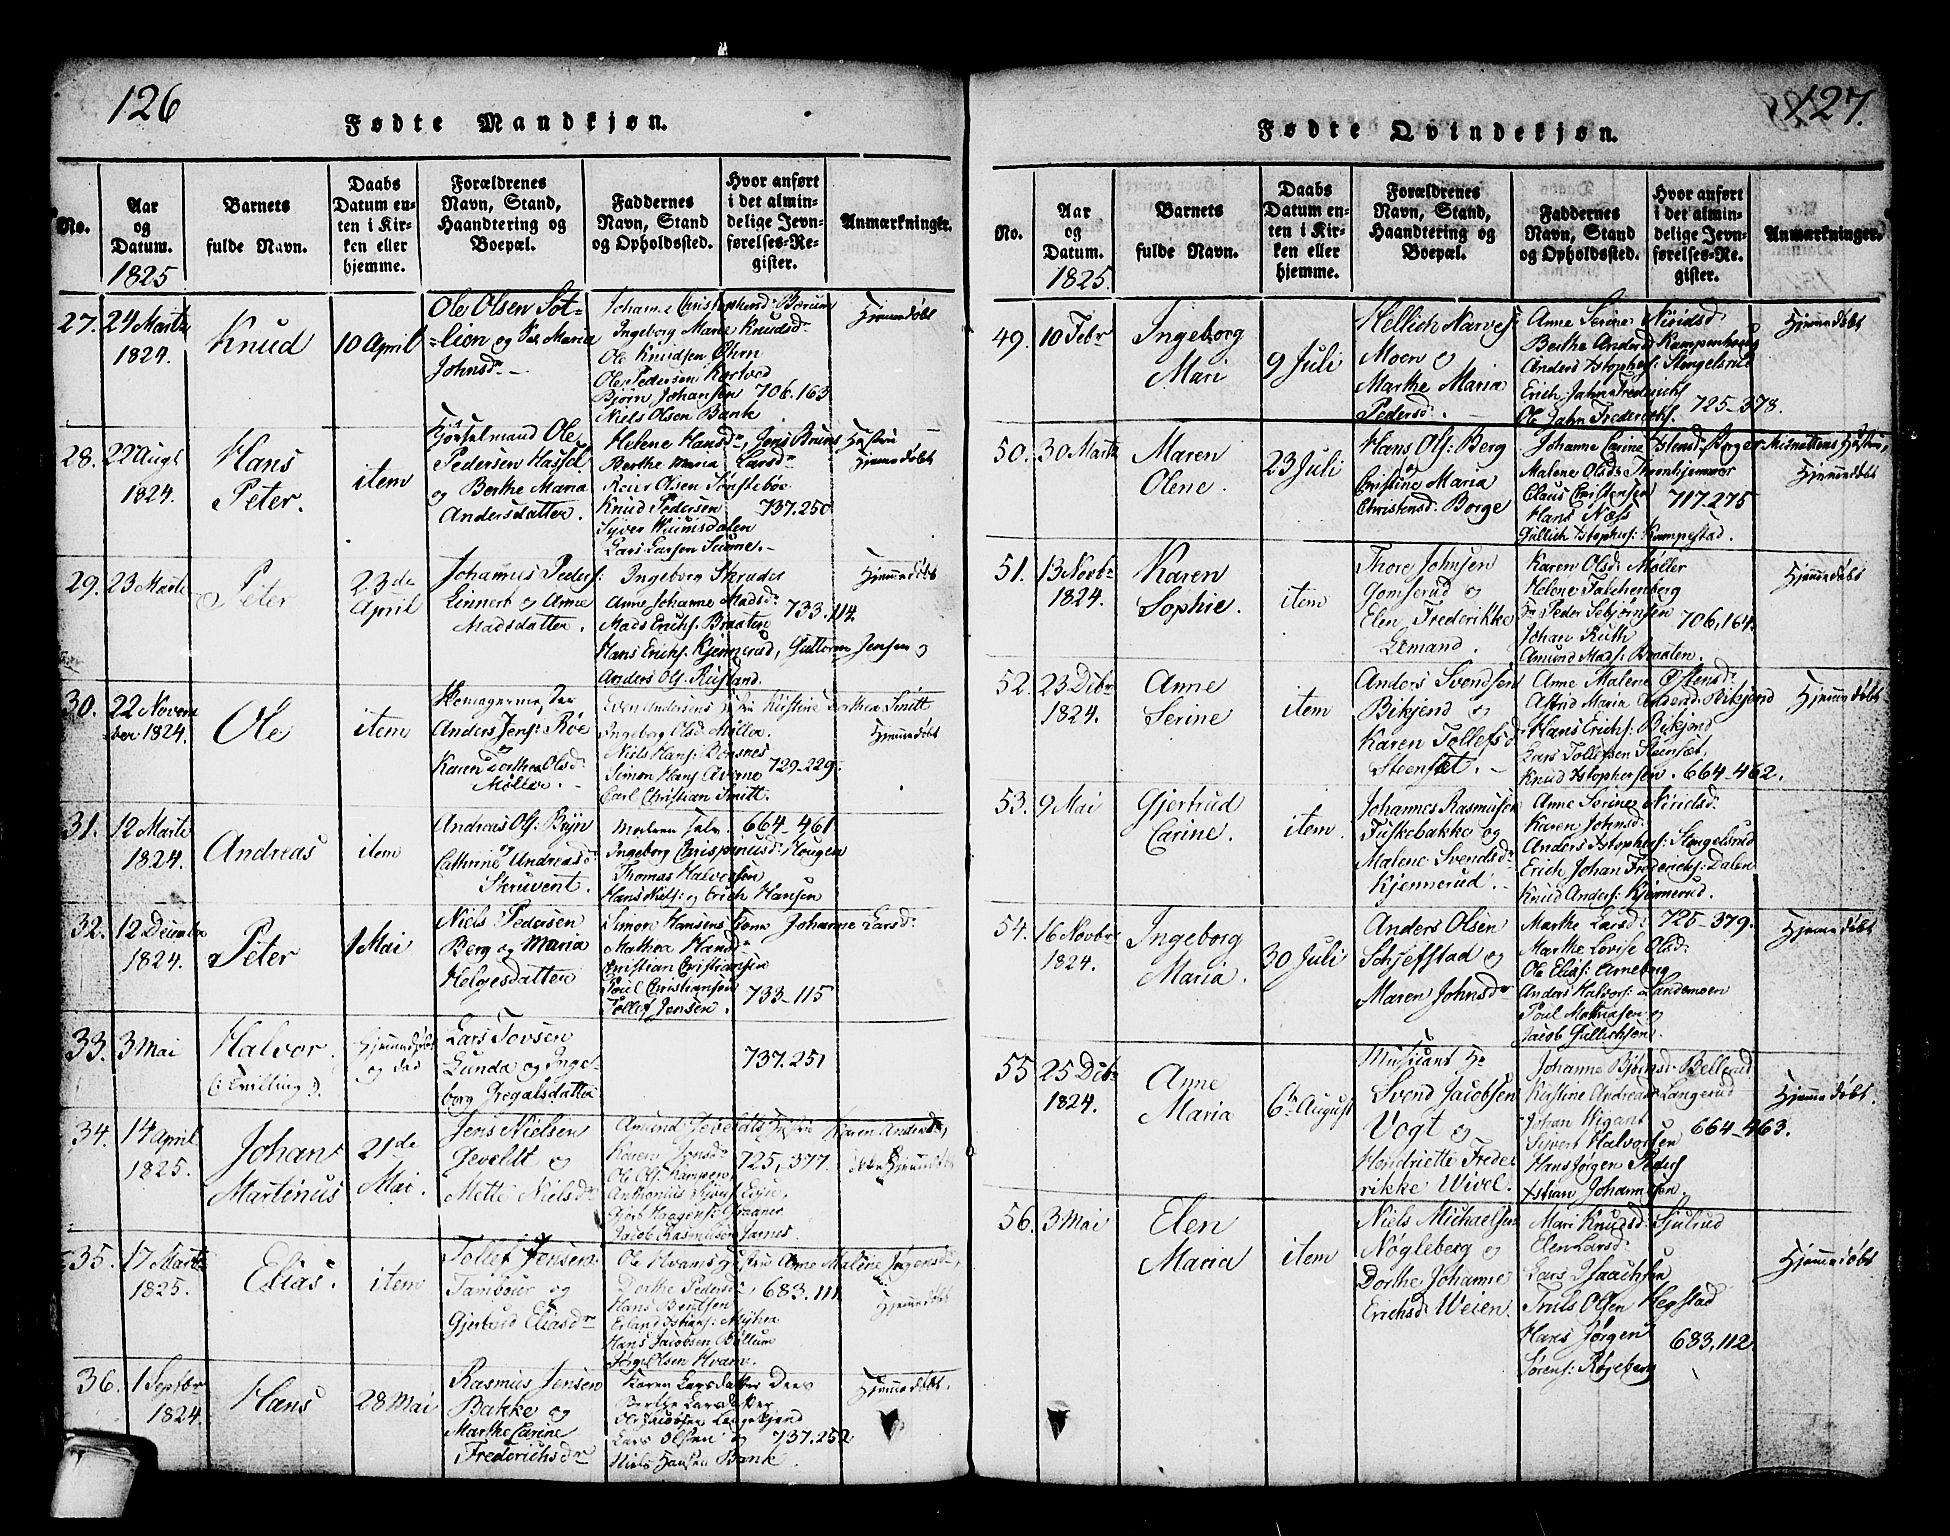 126
Fødte Mandkjøn.
No.
Aar og Datum.
1825
Barnets fulde Navn.
Daabs Datum enten i Kirken eller hjemme.
Forældrenes Navn, Stand, Haandtering og Boepæl.
Faddernes Navn, Stand og Opholdssted.
Hvor anført i det almindelige Jevnførelses-Register.
Anmærkninger.
27.
24 Marts
1824.
Knud
10 April
Ole Olsen
og
Maria
Johnsd.
Ingeborg Marie Knudsd.
Ole Knudsen
Ole Pedersen Kortved
Bjørn Johansen 706.163
Niels Olsen Bank
Hjemmedøbt
28.
22 Augt
1824.
Hans
Peter.
item
Ole
Pedersen Hassel
og Berthe Maria
Andersdatter.
Helene Hansdr, Jens Bruns Hustru
Berthe Maria Larsdr
Knud Pedersen 737.250
Lars Larsen
Hjemmedøbt
29.
23 Marts
Peter
23de
April
Johannes Peders:
Linnert og Anne
Madsdatter.
Ingeborg
Anne Johanne Madsd.
733.114.
Mads Erichs: Braaten
Hans Erichs: Kjennerud, Guttorm Jensen og
Anders Ols: Rustand.
Hjemmedøbt
30.
22 Novem
ber 1824.
Ole
item
Anders Jens: Røe
og
Karen Dorthea Olsd.
Møller.
Kirstine Dorthea Smitt
Ingeborg Olsd. Møller.
Niels Hans:
Simon Hans: 729-229.
Carl Christian Smitt.
Hjemmedøbt
31.
12 Marts
1824.
Andreas
item
Andreas Ols: Bryn
og
Cathrine Andreasdr
Skruvent.
664-461
Ingeborg Chrispinusd. Hougen
Thomas Halvorsen
Hans Niels: og Erich Hansen
32.
12 Decembr
1824.
Peter
1 Mai
Niels Pedersen
Berg og Maria
Helgesdatter
Simon Hansens Kone Johanne Larsd:
Mathea Hansdr
Christian Christiansen
Poul Christiansen
Tollef Jensen. 733-115
33.
3 Mai
Halvor.
(: Tvilling :)
Hjemmedøbt
og død
Lars Tovsen
Lunda og Inge-
borg Gregarsdatter
737.251
34.
14 April
1825.
Johan
Martinus
21de
Mai.
Jens Nielsen
Geveldt og
Mette Nielsdr
Amund Geveldts Hustru Karen Andersd.,
Karen Jensdr 725, 377.
Jacob Rasmussen James
ikke Hjemmedøbt
35.
17 Marts
1825.
Elias.
item
Tollef Jensen
Tambour og
Gjertrud Eliasdr
Ole Hvams Hustru Anne Malene Jørgensd.,
Dorthe Pedersdr, 683.111
Hans Berntsen
Hans Jacobsen Bøllum
Jørg: Olsen Hvam.
Hjemmedøbt
36.
1 Septbr
1824.
Hans
28 Mai
Rasmus Jensen
Bakke og
Marthe Carine
Frederichsdr
Karen Larsdatter
Berthe Larsdatter
Ole Jacobsen Langekjend
Lars Olsen og 737.252
Niels Hansen Bank.
Hjemmedøbt.
127.
Fødte Qvindekjøn.
No.
Aar og Datum.
1825.
Barnets fulde Navn.
Daabs Datum enten i Kirken eller hjemme.
Forældrenes Navn, Stand, Haandtering og Boepæl.
Faddernes Navn, Stand og Opholdssted.
Hvor anført i det almindelige Jevnførelses-Register.
Anmærkninger.
49.
10 Febr
Ingeborg
Mari
9 Juli
Hellich Narves:
Moen og
Marthe Maria
Pedersd.
Anne Serine Niridsd.
Berthe Andersd. Kampenhoug
Anders Xstophers: Stengelsrud
Erich Jahn Frederichs
Ole Jahn Frederichs. 725-378.
Hjemmedøbt
50.
30 Marts
Maren
Olene.
23 Juli
Hans Ols: Berg
og
Cristine Maria
Christensd. Borge
Malene Olsd: Thronhjemmer
Claus Christensen
717.275
Hans Næss
Gullich Xstophers: Kampestad.
Hjemmedøbt
51.
13 Novbr
1824.
Karen
Sophie.
item
Thore Johnsen
Gomserud og
Elen Frederikke
Lemand.
Karen Olsd: Møller
Helene Falchenberg
Hr Peder Sebjørnsen
706,164.
Johan Ruth
Amund Mads: Braaten.
Hjemmedøbt
52.
23 Dcbr
1824.
Anne
Serine
item
Anders Svendsen
Bikjend og
Karen Tollefsd.
Steensæt.
Anne Malene Østensd:
Astrid Maria Andersd. Bikjend
Hans Erichs: Bikjend
Lars Tollefsen Steensæt,
Knud Xstophersen. 664-462.
Hjemmedøbt
53.
9 Mai
Gjertrud
Carine.
item.
Johannes Rasmusen
Fuskebakke og
Malene Svendsdr
Kjennerud.
Anne Serine Niridsd:
Karen Johnsd:
Anders Xstophers: Stengelsrud
Erich Johan Frederichs: Dalen
Knud Anders: Kjennerud.
54.
16 Novbr
1824.
Ingeborg
Maria.
30 Juli
Anders Olsen
Schjefstad og
Maren Johnsdr
Marthe Larsd: 725-379.
Marthe Lovise Olsd:
Ole Elias: Arneberg
Anders Halvors: Landemoen
Poul Mathiasen og
Jacob Gullichsen.
Hjemmedøbt
55.
25 Dcbr
1824.
Anne
Maria
6te August
Musicant Hr
Svend Jacobsen
Vogt og
Hendriette Frede-
rikke Wivel.
Johanne Bjørnsd. Bellerud
Kirstine Andreasd. Langerud
Johan Wigant 664-463.
Sivert Halvorsen
Hans Jørgen Peders
Xstian Johannesen
Hjemmedøbt.
56.
3 Mai
Elen
Maria
item
Niels Michaelsen
Nøgleberg og
Dorthe Johanne
Erichsd. Weien.
Mari Knudsd. Sjulrud
Elen Larsd:
Lars Isaachsen
Truls Olsen Hegstad
Hans Jørgen
683,112.
Sørens: Røgeberg
Hjemmedøbt